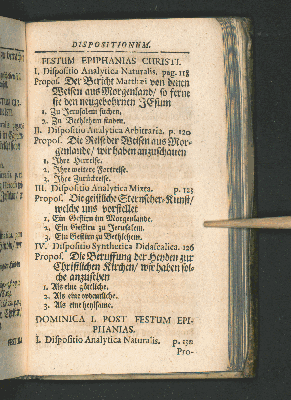 DISPOSITIONEM.
FESTUM EPIPHANIAS CHRISTI.
I. Dispositio Analytica Naturalis. pag. 118
Propos. Der Bericht Matthæi von denen
Weisen aus Morgenland / so ferne
sie den neugebohrnen JEsum
1. Zu Jerusalem suchen,
2. Zu Bethlehem finden.
II. Dispositio Analytica Arbitraria. p. 120
Propos. Die Reise der Weisen aus Mor-
genlande / wir haben anzuschauen
1. Ihre Herreise.
2. Ihre weitere Fortreise.
3. Ihre Zurückreise.
III. Dispositio Analytica Mixta. p. 123
Propos. Die geistliche Sternseher-Kunst /
welche uns vorstellet
1. Ein Gestirn im Morgenlande.
2. Ein Gestirn zu Jerusalem.
3. Ein Gestirn zu Bethlehem.
IV. Dispositio Synthetica Didascalica. 126
Propos. Die Beruffung der Heyden zur
Christlichen Kirchen / wir haben sol-
che anzusehen
1. Als eine göttliche.
2. Als eine ordentliche.
3. Als eine heylsame.
DOMINICA I. POST FESTUM EPI-
PHANIAS.
I. Dispositio Analytica Naturalis. p. 130
Pro-